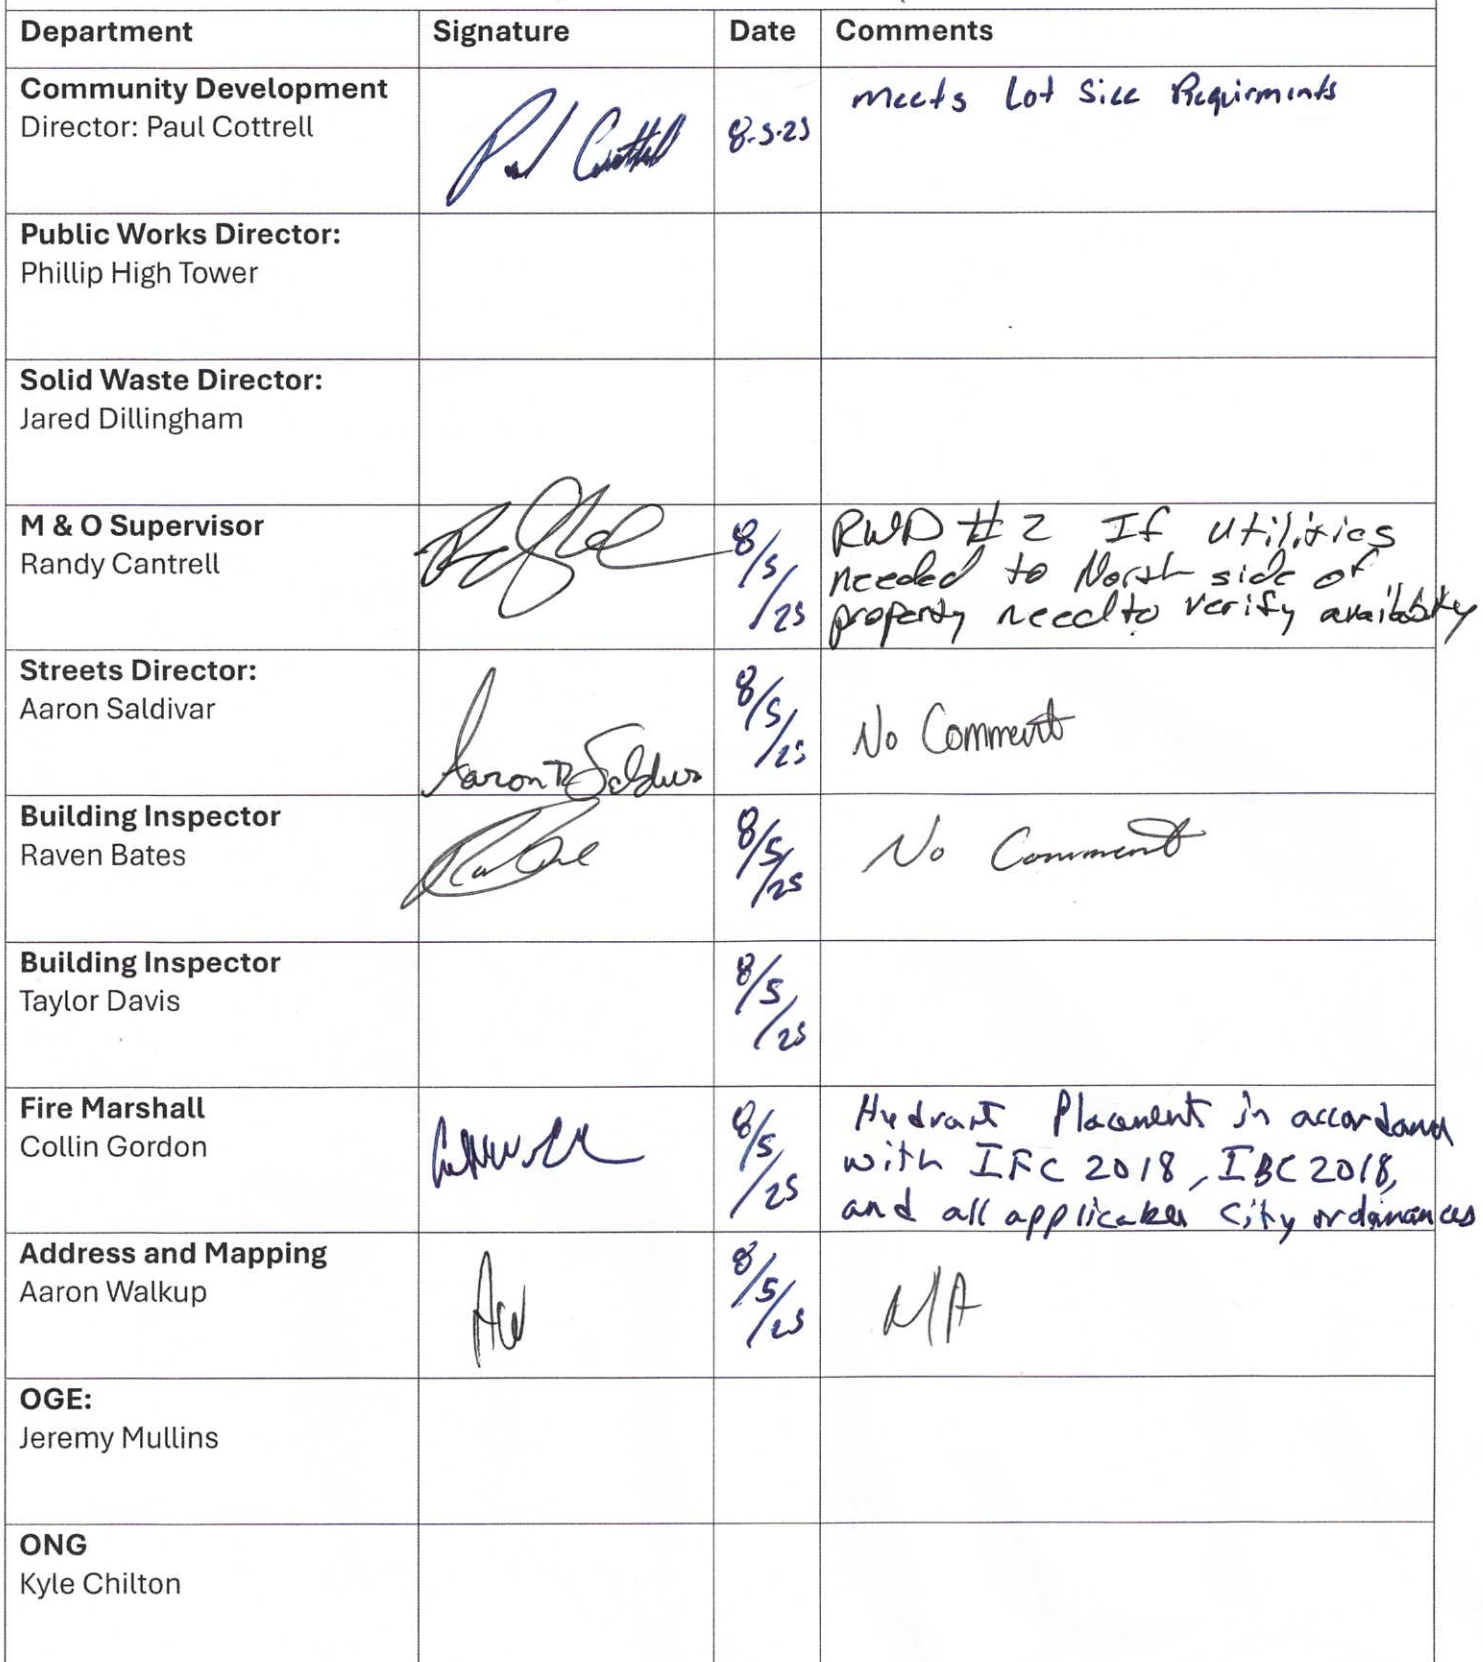 Department Signature Date Comments
Community Development
Director: Paul Cottrell
Paul Cottrell 8-5-25
Meets Lot Size Requirments
Public Works Director:
Phillip High Tower
Solid Waste Director:
Jared Dillingham
M & O Supervisor
Randy Cantrell
8/5/25
RWD #2 If utilities
needed to North side of
property need to verify availability
Streets Director:
Aaron Saldivar
Aaron Saldivar
8/5/25
No Comment
Building Inspector
Raven Bates
8/5/25
No Comment
Building Inspector
Taylor Davis
8/5/25
Fire Marshall
Collin Gordon
8/5/25
Hydrant Placement in accordance
with IFC 2018, IBC 2018,
and all applicable City ordinances
Address and Mapping
Aaron Walkup
AW
8/5/25
N/A
OGE:
Jeremy Mullins
ONG
Kyle Chilton